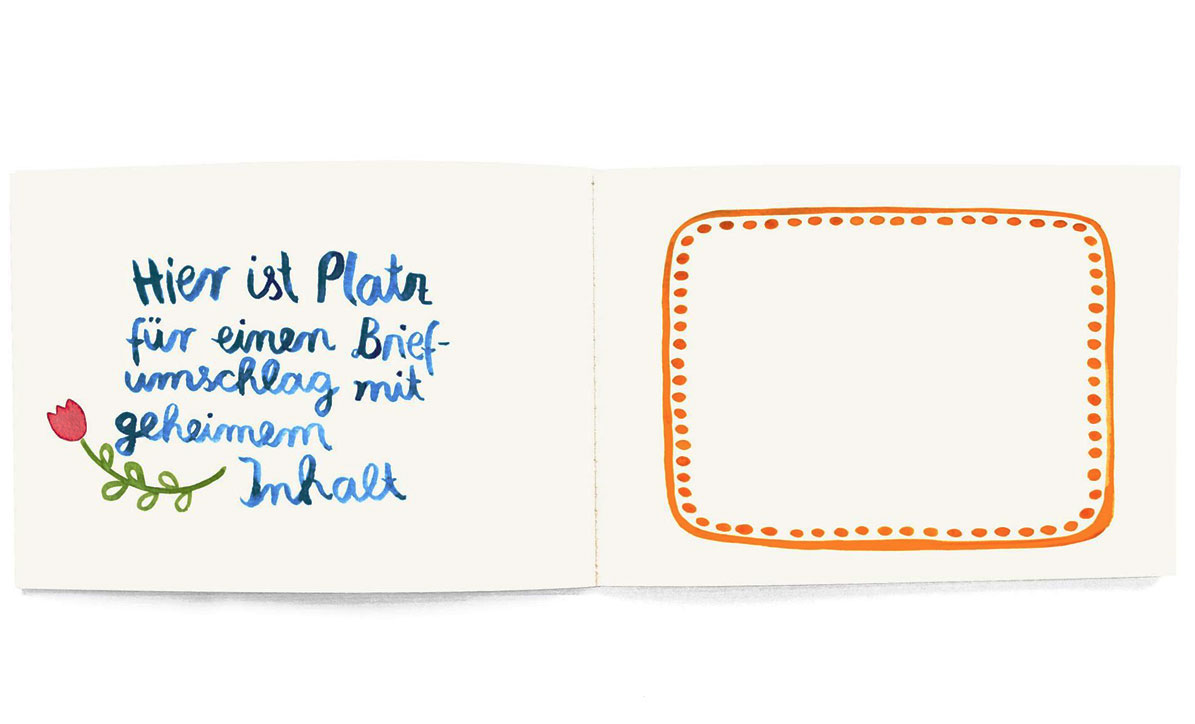 Hier ist Platz
für einen Brief-
umschlag mit
geheimem
Inhalt